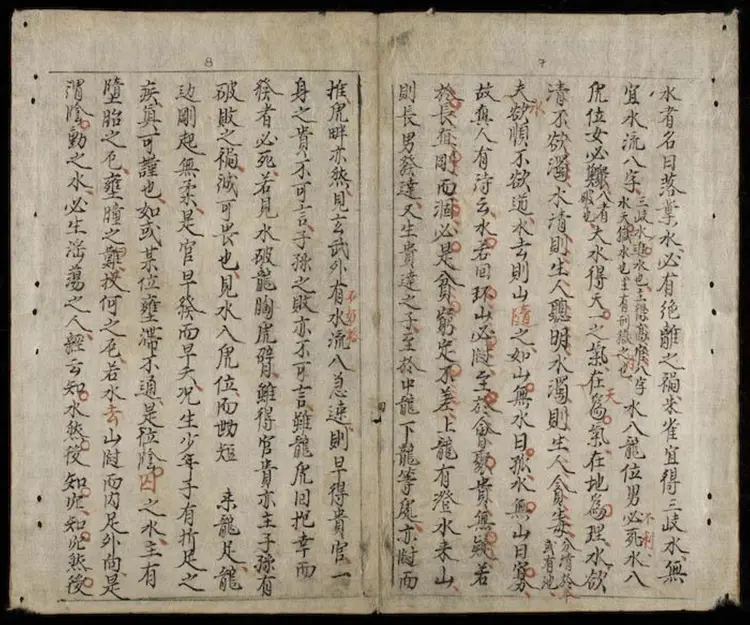 7
水者名曰落業水必有絕離之禍朱雀宜得三歧水無
宜水流八字 三歧水進水也主得高官八字
水天獄水也主有刑獄之也 水八龍位男必死 不利 水八
虎位女必難 夫水得天一之氣在天為氣在地為理水欲
清不欲濁水清則生人聰明水濁則生人貪毒
夫水欲順不欲逆水去則山隨之如山無水曰孤水無山曰寡
故真人有詩云水若回環山必隨至於會聚貴無疑若
於長直剛而涸必是貧窮定不差上龍有澄水来山
則長男發達又生貴達之子至於中龍下龍等處亦隨而
8
推虎畔亦然見玄武外有水流八急速則早得貴官一
身之貴不可言子孫之敗亦不可言雖龍虎回抱幸而
發者必死若見水破龍胸虎臂雖得官貴亦主子孫有
破敗之禍誠可畏也見水入虎位而 短 来龍足龍
边剛起無柔是官早發而早夭况生少年子有折足之
疾真可謹也如或某位壅滞不通是位陰囚之水主有
墮胎之厄壅腫之難投何之厄若水去山隨而內足外向是
谓陰動之水必生滛蕩之人經云知水然後知穴知穴然後